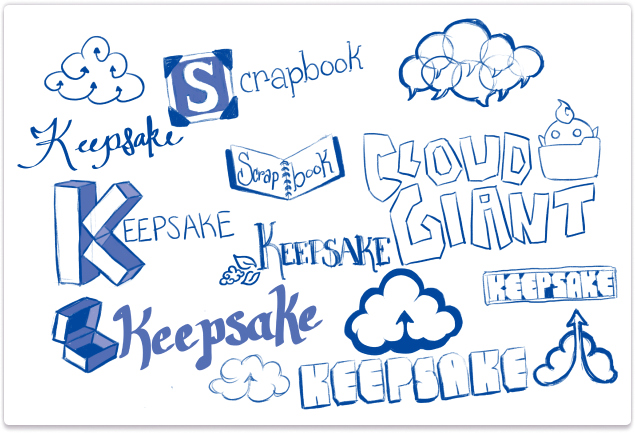 Scrapbook
Keepsake
Scrapbook
CLOUD
GIANT
KEEPSAKE
KEEPSAKE
KEEPSAKE
Keepsake
KEEPSAKE